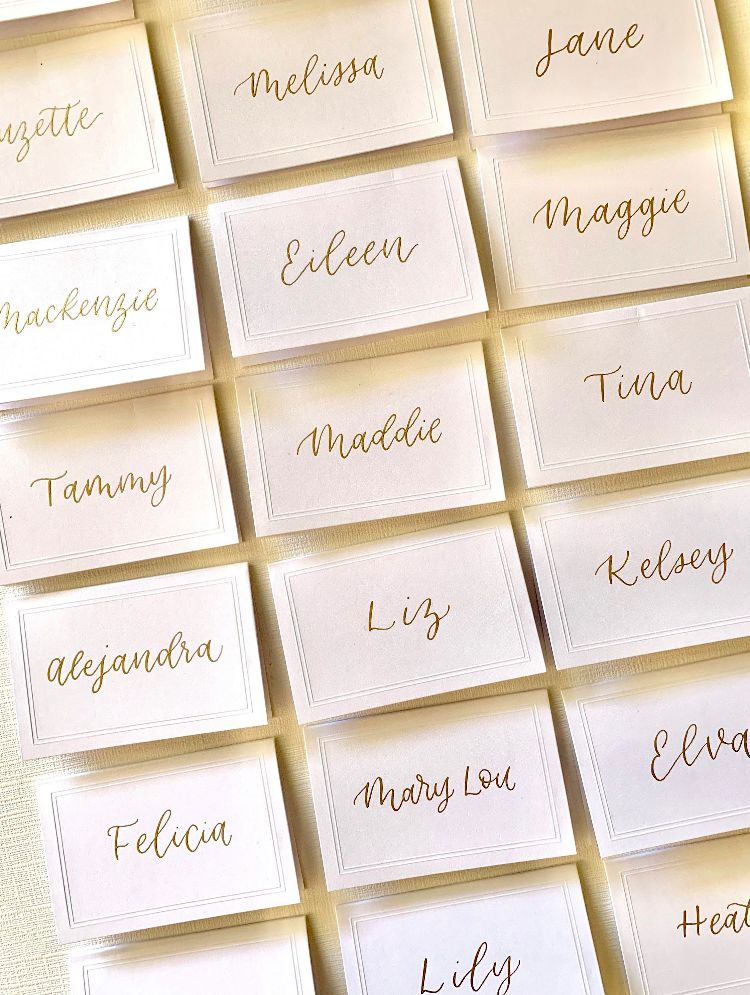 Melissa
Jane
uzette
Eileen
Maggie
Mackenzie
Maddie
Tina
Tammy
Liz
Kelsey
alejandra
Mary Lou
Elva
Felicia
Lily
Heat